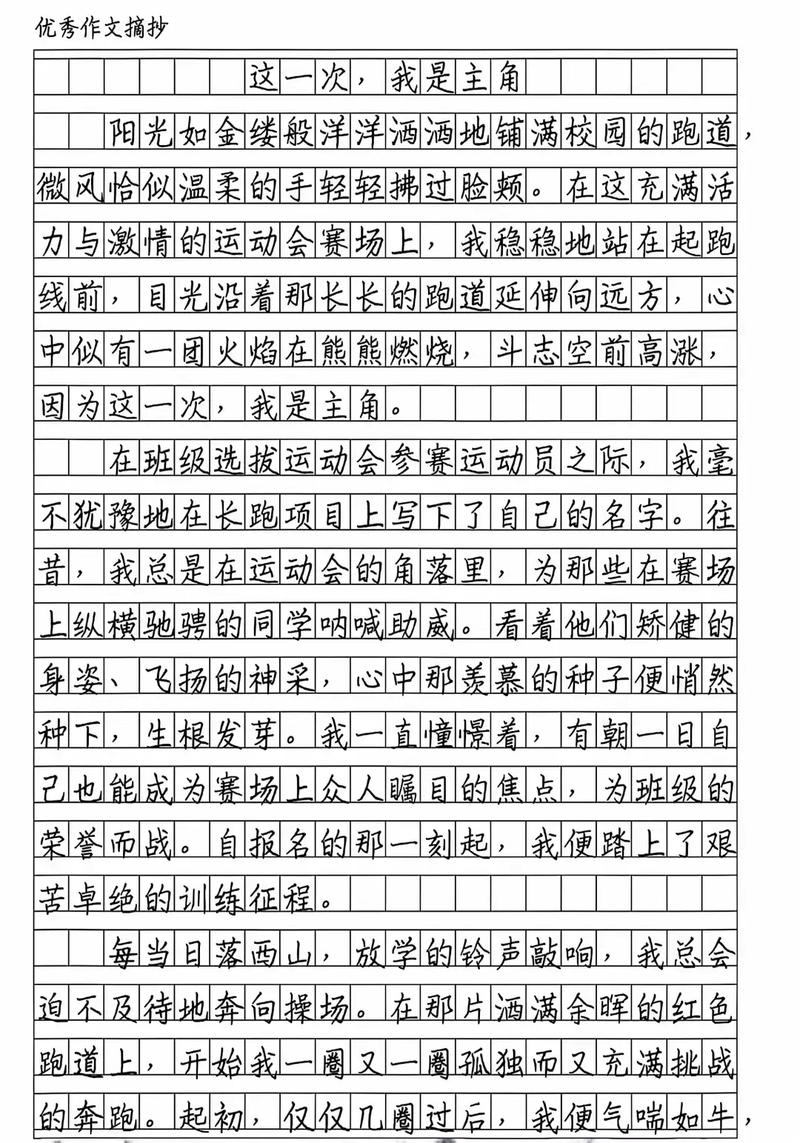 优秀作文摘抄
这一次，我是主角
阳光如金缕般洋洋洒洒地铺满校园的跑道，
微风恰似温柔的手轻轻拂过脸颊。在这充满活
力与激情的运动会赛场上，我稳稳地站在起跑
线前，目光沿着那长长的跑道延伸向远方，心
中似有一团火焰在熊熊燃烧，斗志空前高涨，
因为这一次，我是主角。
在班级选拔运动会参赛运动员之际，我毫
不犹豫地在长跑项目上写下了自己的名字。往
昔，我总是在运动会的角落里，为那些在赛场
上纵横驰骋的同学呐喊助威。看着他们矫健的
身姿、飞扬的神采，心中那羡慕的种子便悄然
种下，生根发芽。我一直憧憬着，有朝一日自
己也能成为赛场上众人瞩目的焦点，为班级的
荣誉而战。自报名的那一刻起，我便踏上了艰
苦卓绝的训练征程。
每当日落西山，放学的铃声敲响，我总会
迫不及待地奔向操场。在那片洒满余晖的红色
跑道上，开始我一圈又一圈孤独而又充满挑战
的奔跑。起初，仅仅几圈过后，我便气喘如牛，